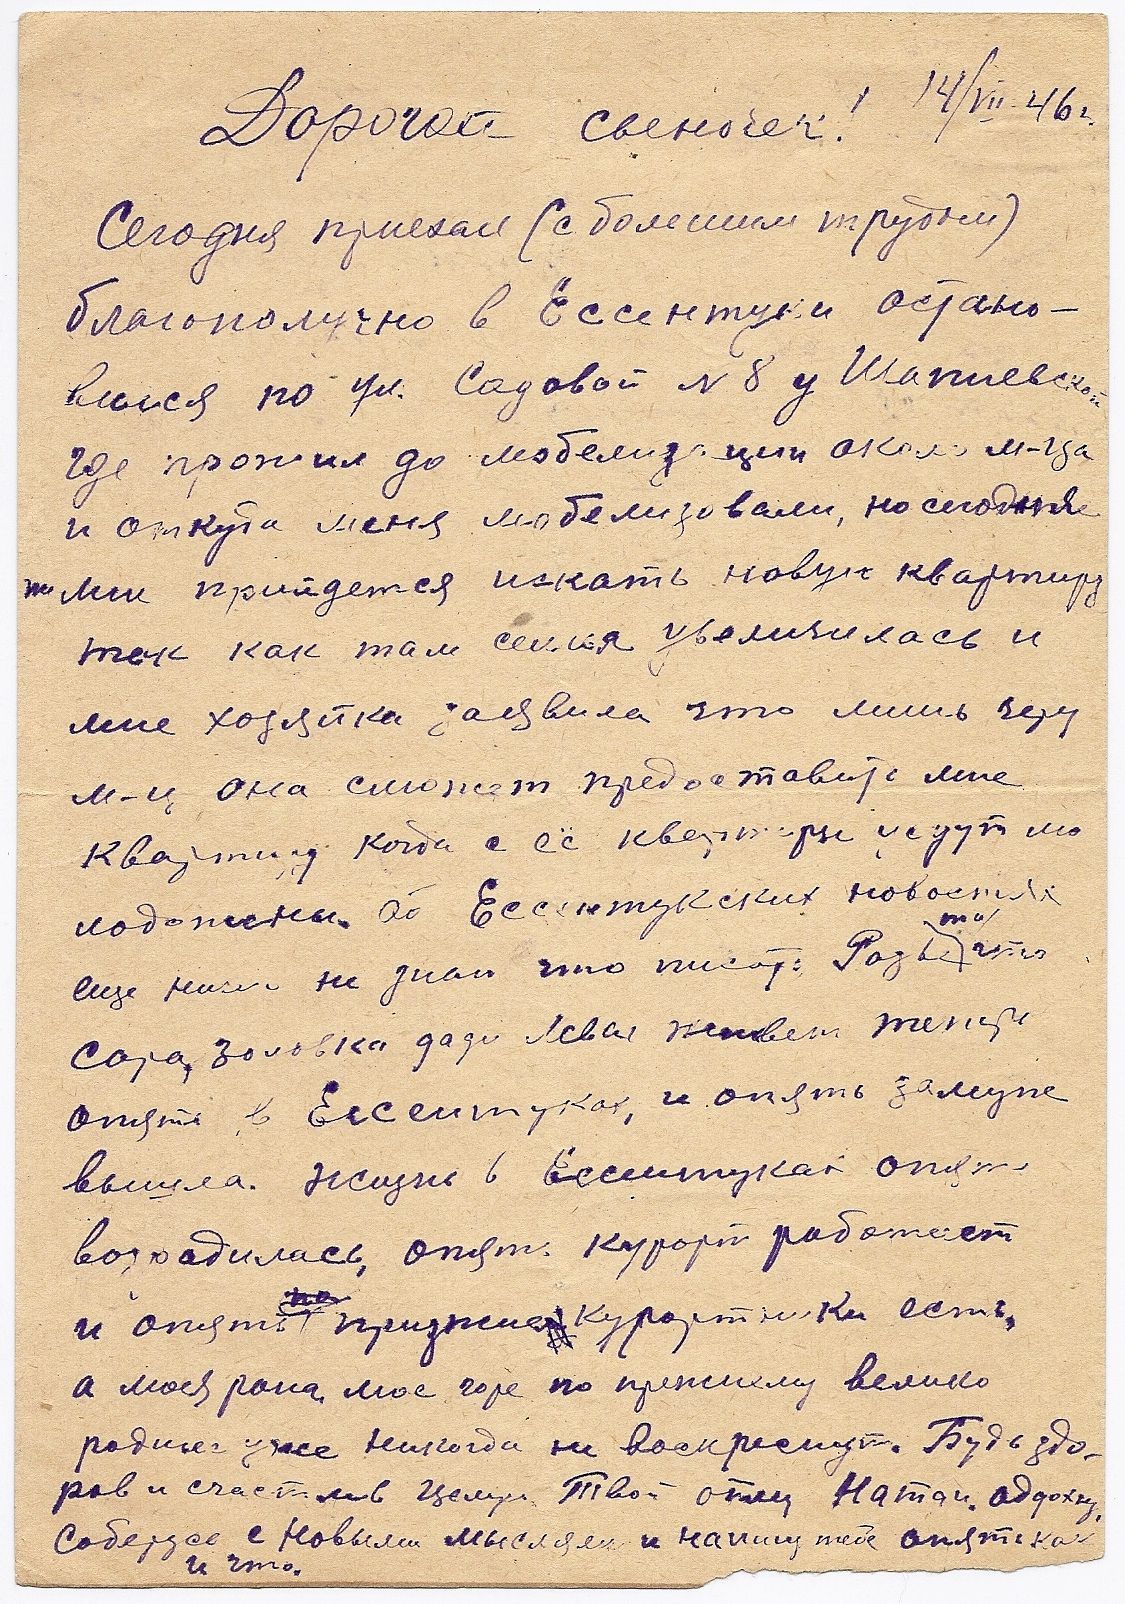 14/VII-46 г.
Дорогой сыночек!
Сегодня приехал (с большим трудом)
благополучно в Ессентуки остано-
вился по ул. Садовой N 8 у Шапиевской
где прожил до мобелизации около м-ца
и откуда меня мобелизовали, но сегодня
мне прийдется искать новую квартиру
так как там семья увеличилась и
мне хозяйка заявила что лишь через
м-ц она сможет предоставить мне
квартиру когда с её квартиры уедут мо
лодожены. Об Ессентукских новостях
еще ничего не знаю что писать. Разве что
Сара, золовка дяди Левы живет теперь
опять в Ессентуках, и опять замуж
вышла. Жизнь в Ессентуках опять
возродилась, опять курорт работает
и опять приезжие курортники есть,
а моя рана, мое горе по прежнему велико
родные уже никогда не воскреснут. Будь здо-
ров и счастлив целую. Твой отец Натан. отдохну,
соберусь с новыми мыслями и напишу тебе опять как
и что.